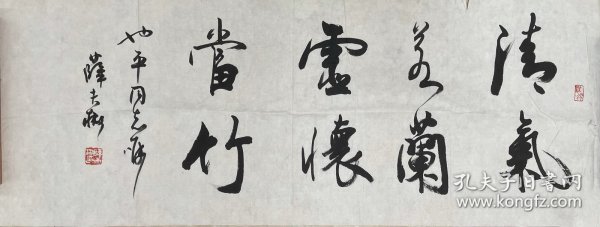 清氣
若蘭
虛懷
當竹
地平同志嘱
薛夫彬
孔夫子旧书网
www.kongfz.com